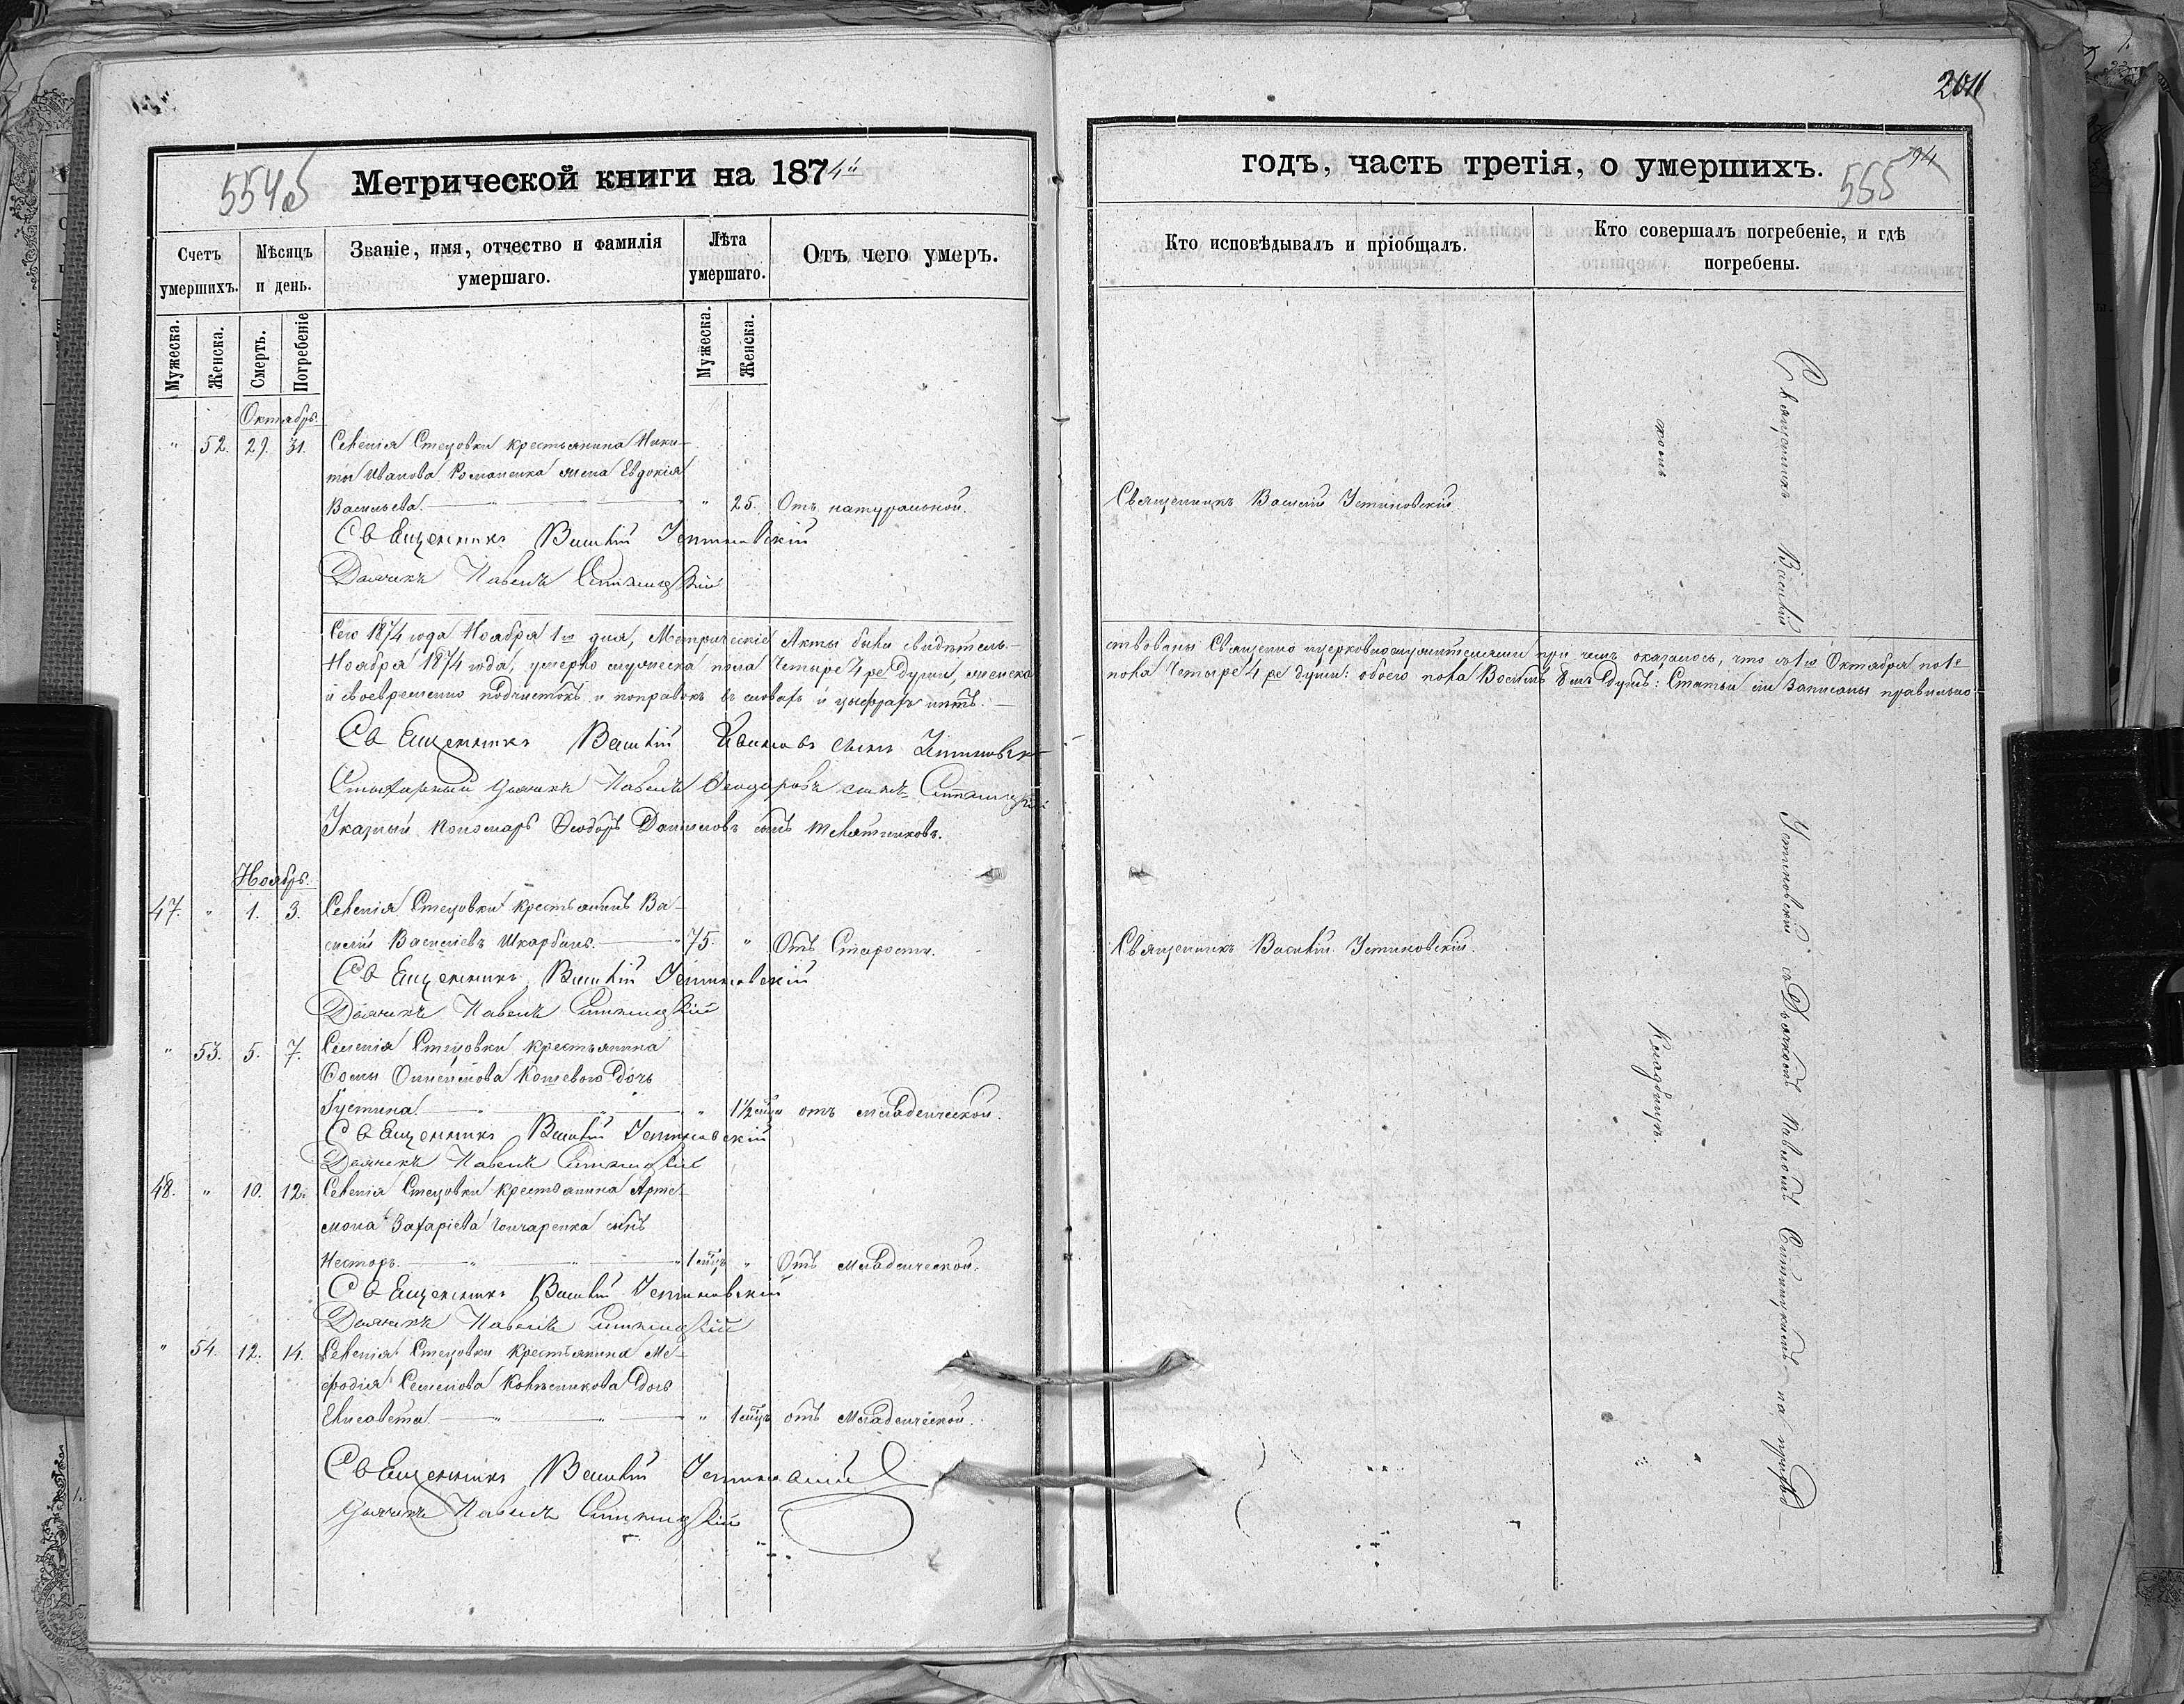 201
554об
Метрической книги на 1874й
годъ, часть третія, о умершихъ.
565
94
Счетъ умершихъ.
Мѣсяцъ и день.
Званіе, имя, отчество и фамилія умершаго.
Лѣта умершаго.
Отъ чего умеръ.
Кто исповѣдывалъ и пріобщалъ.
Кто совершалъ погребеніе, и гдѣ погребены.
Мужеска.
Женска.
Смерть.
Погребеніе
Мужеска.
Женска.
Октябрь.
" 52. 29. 31. Селенія Стецовки крестьянина Ники-
ты Иванова Романенка жена Евдокія
Васильева. " 25. Отъ натуральной. Священникъ Василій Устиновскій
Священникъ Василій Устиновскій
Дьячекъ Павелъ
Сего 1874 года Ноября 1го дня, Метрическіе Акты были свидѣтель-
ствованы Священно церковнослужителями при чемъ оказалось, что съ 1го Октября по 1е
Ноября 1874 года, умерло мужеска пола Четыре 4ре души, женска
пола Четыре 4ре души: обоего пола Восемь 8мь душъ: Статьи сіи Записаны правильно
и своевременно подчистокъ и поправокъ въ словахъ и цыфрахъ нѣтъ.
Священникъ Василій Ивановъ сынъ Устиновскій
Стихарный дьячекъ Павелъ Феодоровъ сынъ
Указный Пономарь Феодоръ Данииловъ сынъ
Ноябрь.
47. " 1. 3. Селенія Стецовки крестьянинъ Ва-
силій Василіевъ Шкарбанъ. 75. " Отъ Старости. Священникъ Василій Устиновскій.
Священникъ Василій Устиновскій
Дьячекъ Павелъ
" 53. 5. 7. Селенія Стецовки крестьянина
Фомы Кошевого дочь
Іустина. " 1½ мѣсяца отъ младенческой.
Священникъ Василій Устиновскій
Дьячекъ Павелъ
48. " 10. 12. Селенія Стецовки крестьянина Арте-
мона Захаріева Гончаренка сынъ
Несторъ. 1 мѣсяцъ " Отъ младенческой.
Священникъ Василій Устиновскій
Дьячекъ Павелъ
" 54. 12. 14. Селенія Стецовки крестьянина Ме-
фодія Семенова Колѣсникова дочь
Елисавета. " 1 мѣсяцъ отъ младенческой.
Священникъ Василій Устиновскій
Дьячекъ Павелъ
Священникъ Василій Устиновскій съ Дьячкомъ Павломъ на
скомъ Кладбищѣ.